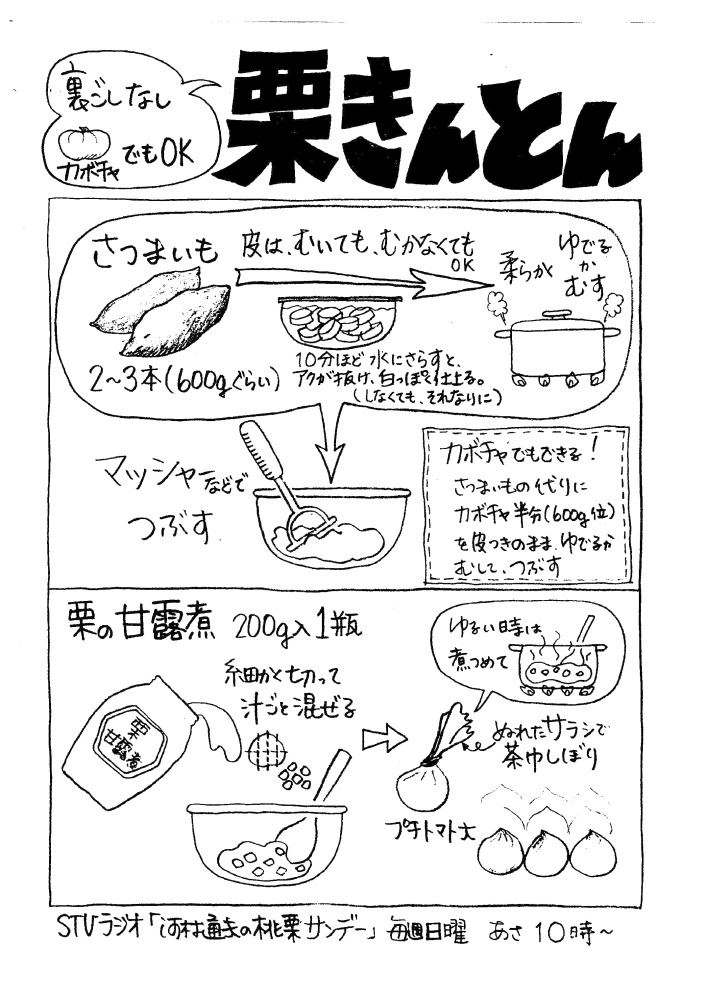 裏ごしなし
カボチャでもOK
栗きんとん
さつまいも
2～3本(600gぐらい)
皮は、むいても、むかなくても
OK
10分ほど水にさらすと、
アクが抜け、白っぽく仕上る。
(しなくても、それなりに)
柔らかく
ゆでる
か
むす
マッシャーなどで
つぶす
カボチャでもできる!
さつまいもの代りに
カボチャ半分(600g位)
を皮つきのまま、ゆでるか
むして、つぶす
栗の甘露煮 200g入1瓶
栗
甘露煮
細かく切って
汁ごと混ぜる
ゆるい時は
煮つめて
ぬれたサラシで
茶巾しぼり
プチトマト大
STVラジオ「河村通夫の桃栗サンデー」毎週日曜 あさ10時～